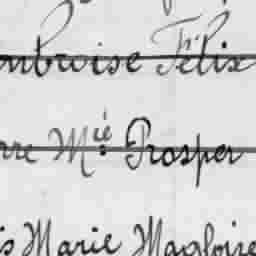 ombroise Félix
rre Mie Prosper
is Marie Magloire